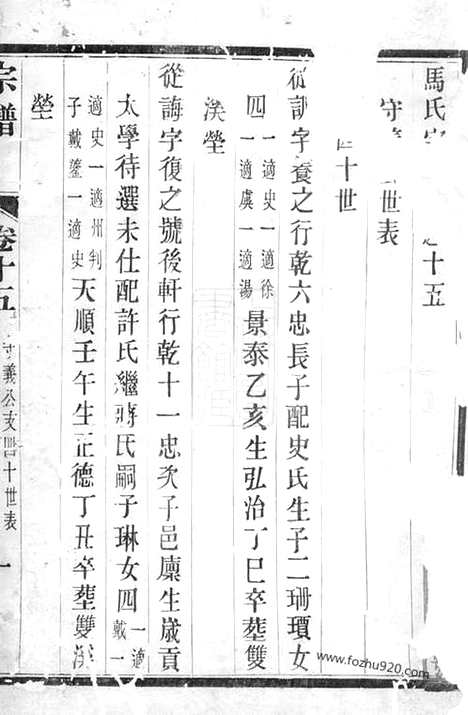 馬氏宗
十五
守 世表
十世
從訓字養之行乾六忠長子配史氏生子二珊瓊女
四一適史一適徐一適虞一適湯景泰乙亥生弘治丁巳卒塟雙
渼塋
從誨字復之號後軒行乾十一忠次子邑廩生歲貢
太學待選未仕配許氏繼蔣氏嗣子琳女四一適戴一
適史一適州判子戴鏊一適史天順壬午生正德丁丑卒塟雙渼
塋
宗譜
卷十五
義公支 十世表
一
www.fozhu920.com